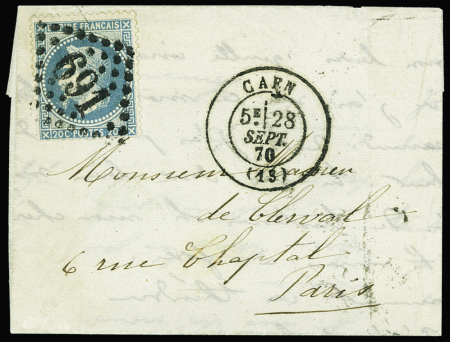 EMPIRE FRANC
691
20C POSTES 20C
CAEN
5E 28
SEPT.
70
(13)
Monsieur
de Clerval
6 rue Chaptal
Paris